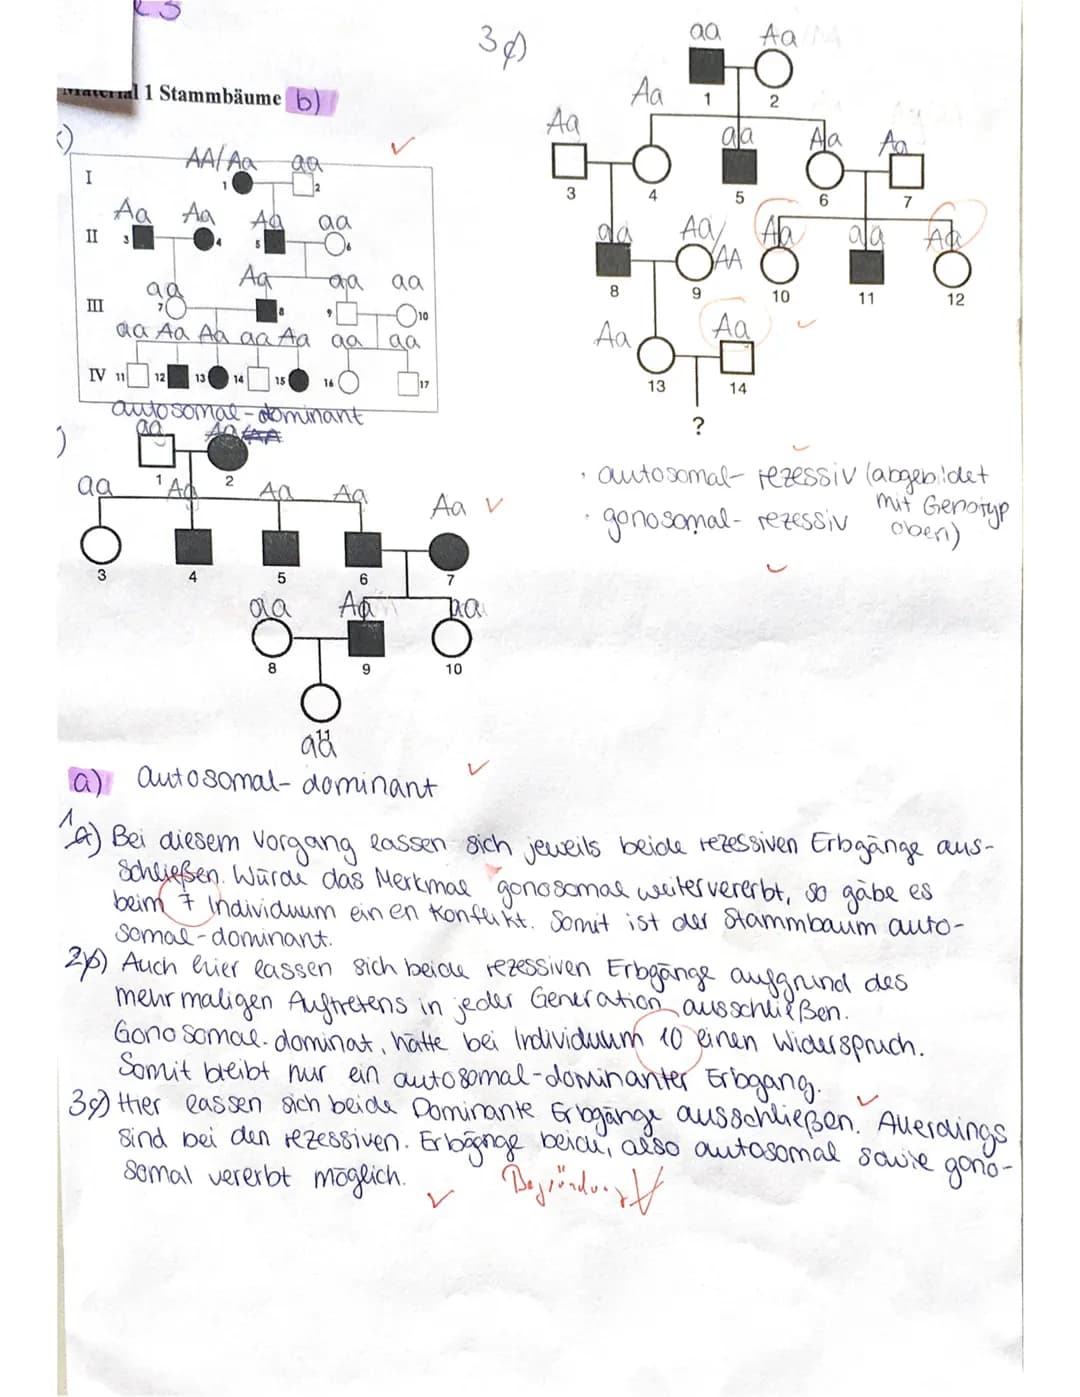 Material 1 Stammbäume b)
AA/Aa aa
I 1 2
Aa Aa Aa aa
II 3 4 5 6
aa Aa aa aa
III 7 8 9 10
aa Aa Aa aa Aa aa aa
IV 11 12 13 14 15 16 17
autosomal-dominant
aa Aa
1 2
aa Aa Aa Aa Aa
3 4 5 6 7
aa Aa aa
8 9 10
11
aa
a) autosomal-dominant
3c)
aa Aa
1 2
Aa Aa aa Aa Aa
3 4 5 6 7
aa Aa/AA Aa aa Aa
8 9 10 11 12
Aa Aa
13 14
?
· autosomal-rezessiv (abgebildet mit Genotyp oben)
· gonosomal-rezessiv
1a) Bei diesem Vorgang lassen sich jeweils beide rezessiven Erbgänge aus-
schließen. Würde das Merkmal gonosomal weitervererbt, so gäbe es
beim 7 Individuum einen Konflikt. Somit ist der Stammbaum auto-
somal-dominant.
2b) Auch hier lassen sich beide rezessiven Erbgänge aufgrund des
mehrmaligen Auftretens in jeder Generation ausschließen.
Gonosomal-dominat, hätte bei Individuum 10 einen Widerspruch.
Somit bleibt nur ein autosomal-dominanter Erbgang.
3c) Hier lassen sich beide Dominante Erbgänge ausschließen. Allerdings
sind bei den rezessiven Erbgänge beide, also autosomal sowie gono-
somal vererbt möglich.